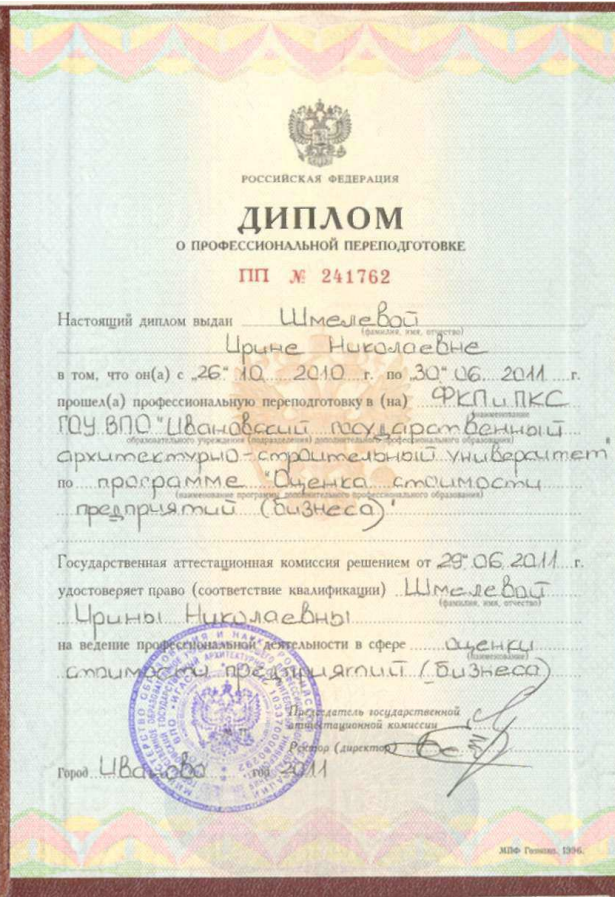 РОССИЙСКАЯ ФЕДЕРАЦИЯ
ДИПЛОМ
О ПРОФЕССИОНАЛЬНОЙ ПЕРЕПОДГОТОВКЕ
ПП № 241762
Настоящий диплом выдан Шмелевой
(фамилия, имя, отчество)
Ирине Николаевне
в том, что он(а) с „26" 10 2010 г. по „30" 06 2011 г.
прошел(а) профессиональную переподготовку в (на) ФКП и ПКС
(наименование
ГОУ ВПО "Ивановский государственный
образовательного учреждения (подразделения) дополнительного профессионального образования)
архитектурно-строительный университет
по программе "Оценка стоимости
(наименование программы дополнительного профессионального образования)
предприятий (бизнеса)"
Государственная аттестационная комиссия решением от „29" 06 2011 г.
удостоверяет право (соответствие квалификации) Шмелевой
(фамилия, имя, отчество)
Ирины Николаевны
на ведение профессиональной деятельности в сфере оценки
(наименование)
стоимости предприятий (бизнеса)
Председатель государственной
аттестационной комиссии
Ректор (директор)
Город Иваново год 2011
МПФ Гознака. 1996.